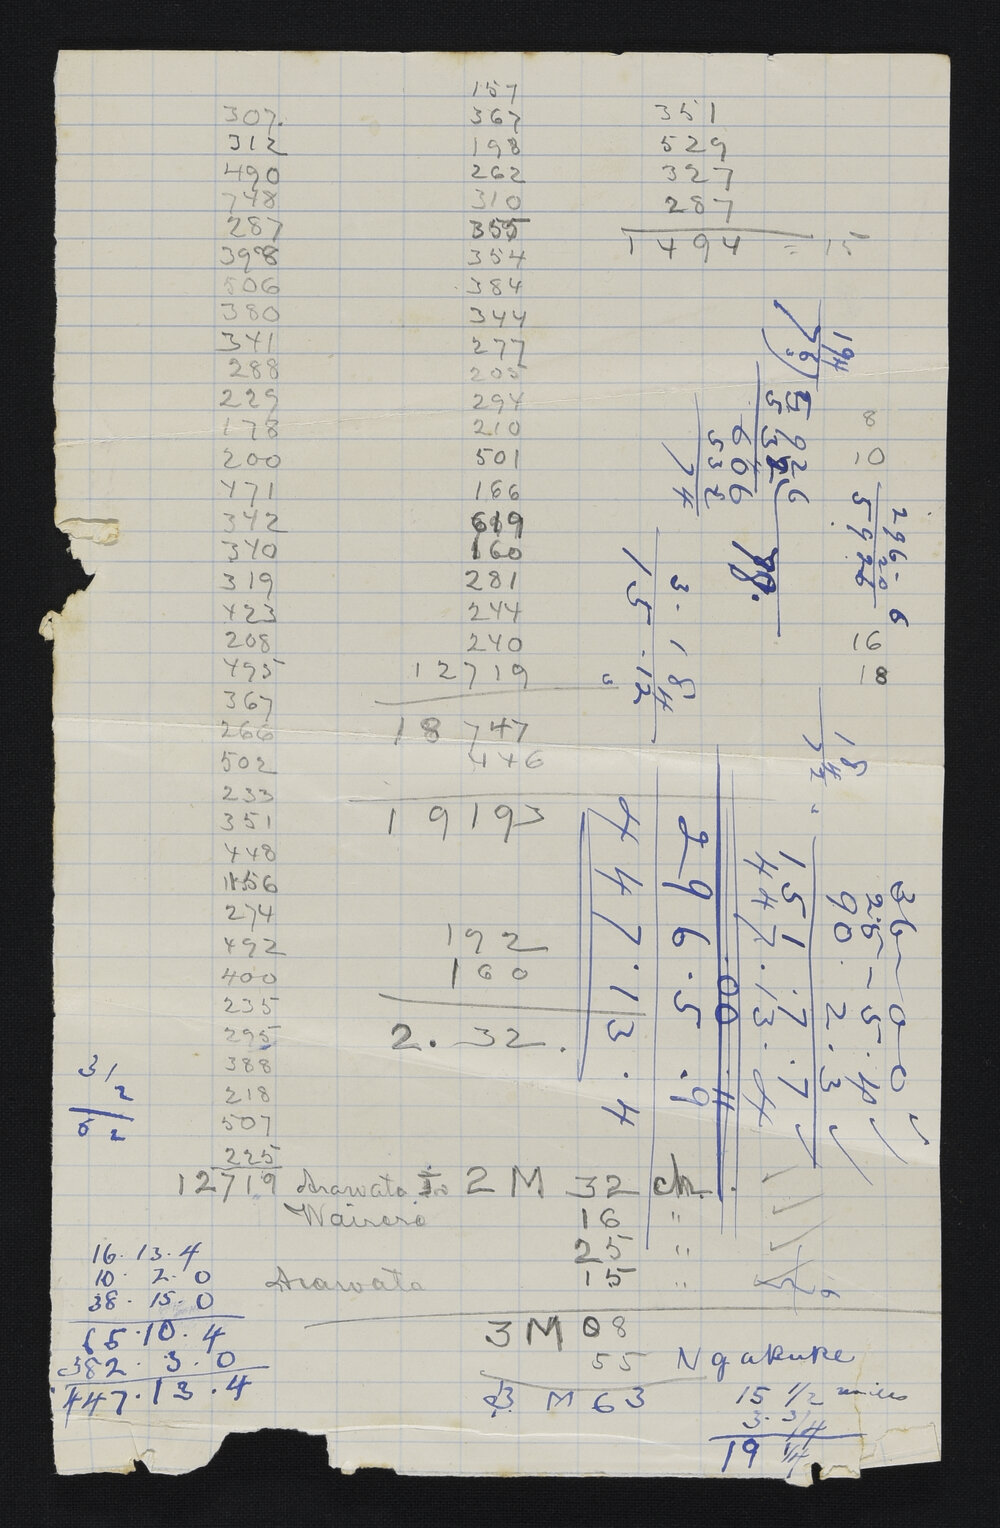 307.
312
490
748
287
398
506
380
341
288
229
178
200
471
342
340
319
423
208
495
367
266
502
233
351
448
1156
274
492
400
235
295
388
218
507
225
12719
157
367
198
262
310
355
354
384
344
277
205
294
210
501
166
619
160
281
244
240
12719
18747
446
19193
192
160
2. 32.
351
529
327
287
1494 = 15
8
10
16
18
19/4
76) 5926
532
606
532
74
78.
296-6
20
5926
3. 18
4
15 - 12 "
18
4
36-0-0
25-5.4
90.2.3
151.7.7
447.13.4
00.4
296.5.9
447.13.4
31
2
62
Arawata to 2 M 32 ch.
Wairere 16 "
25 "
Arawata 15 "
3 M 08
55 Ngakuke
3 M 63
16. 13. 4
10. 2. 0
38. 15. 0
65. 10. 4
382. 3. 0
447. 13. 4
15 1/2 miles
3. 3/4
19 1/4